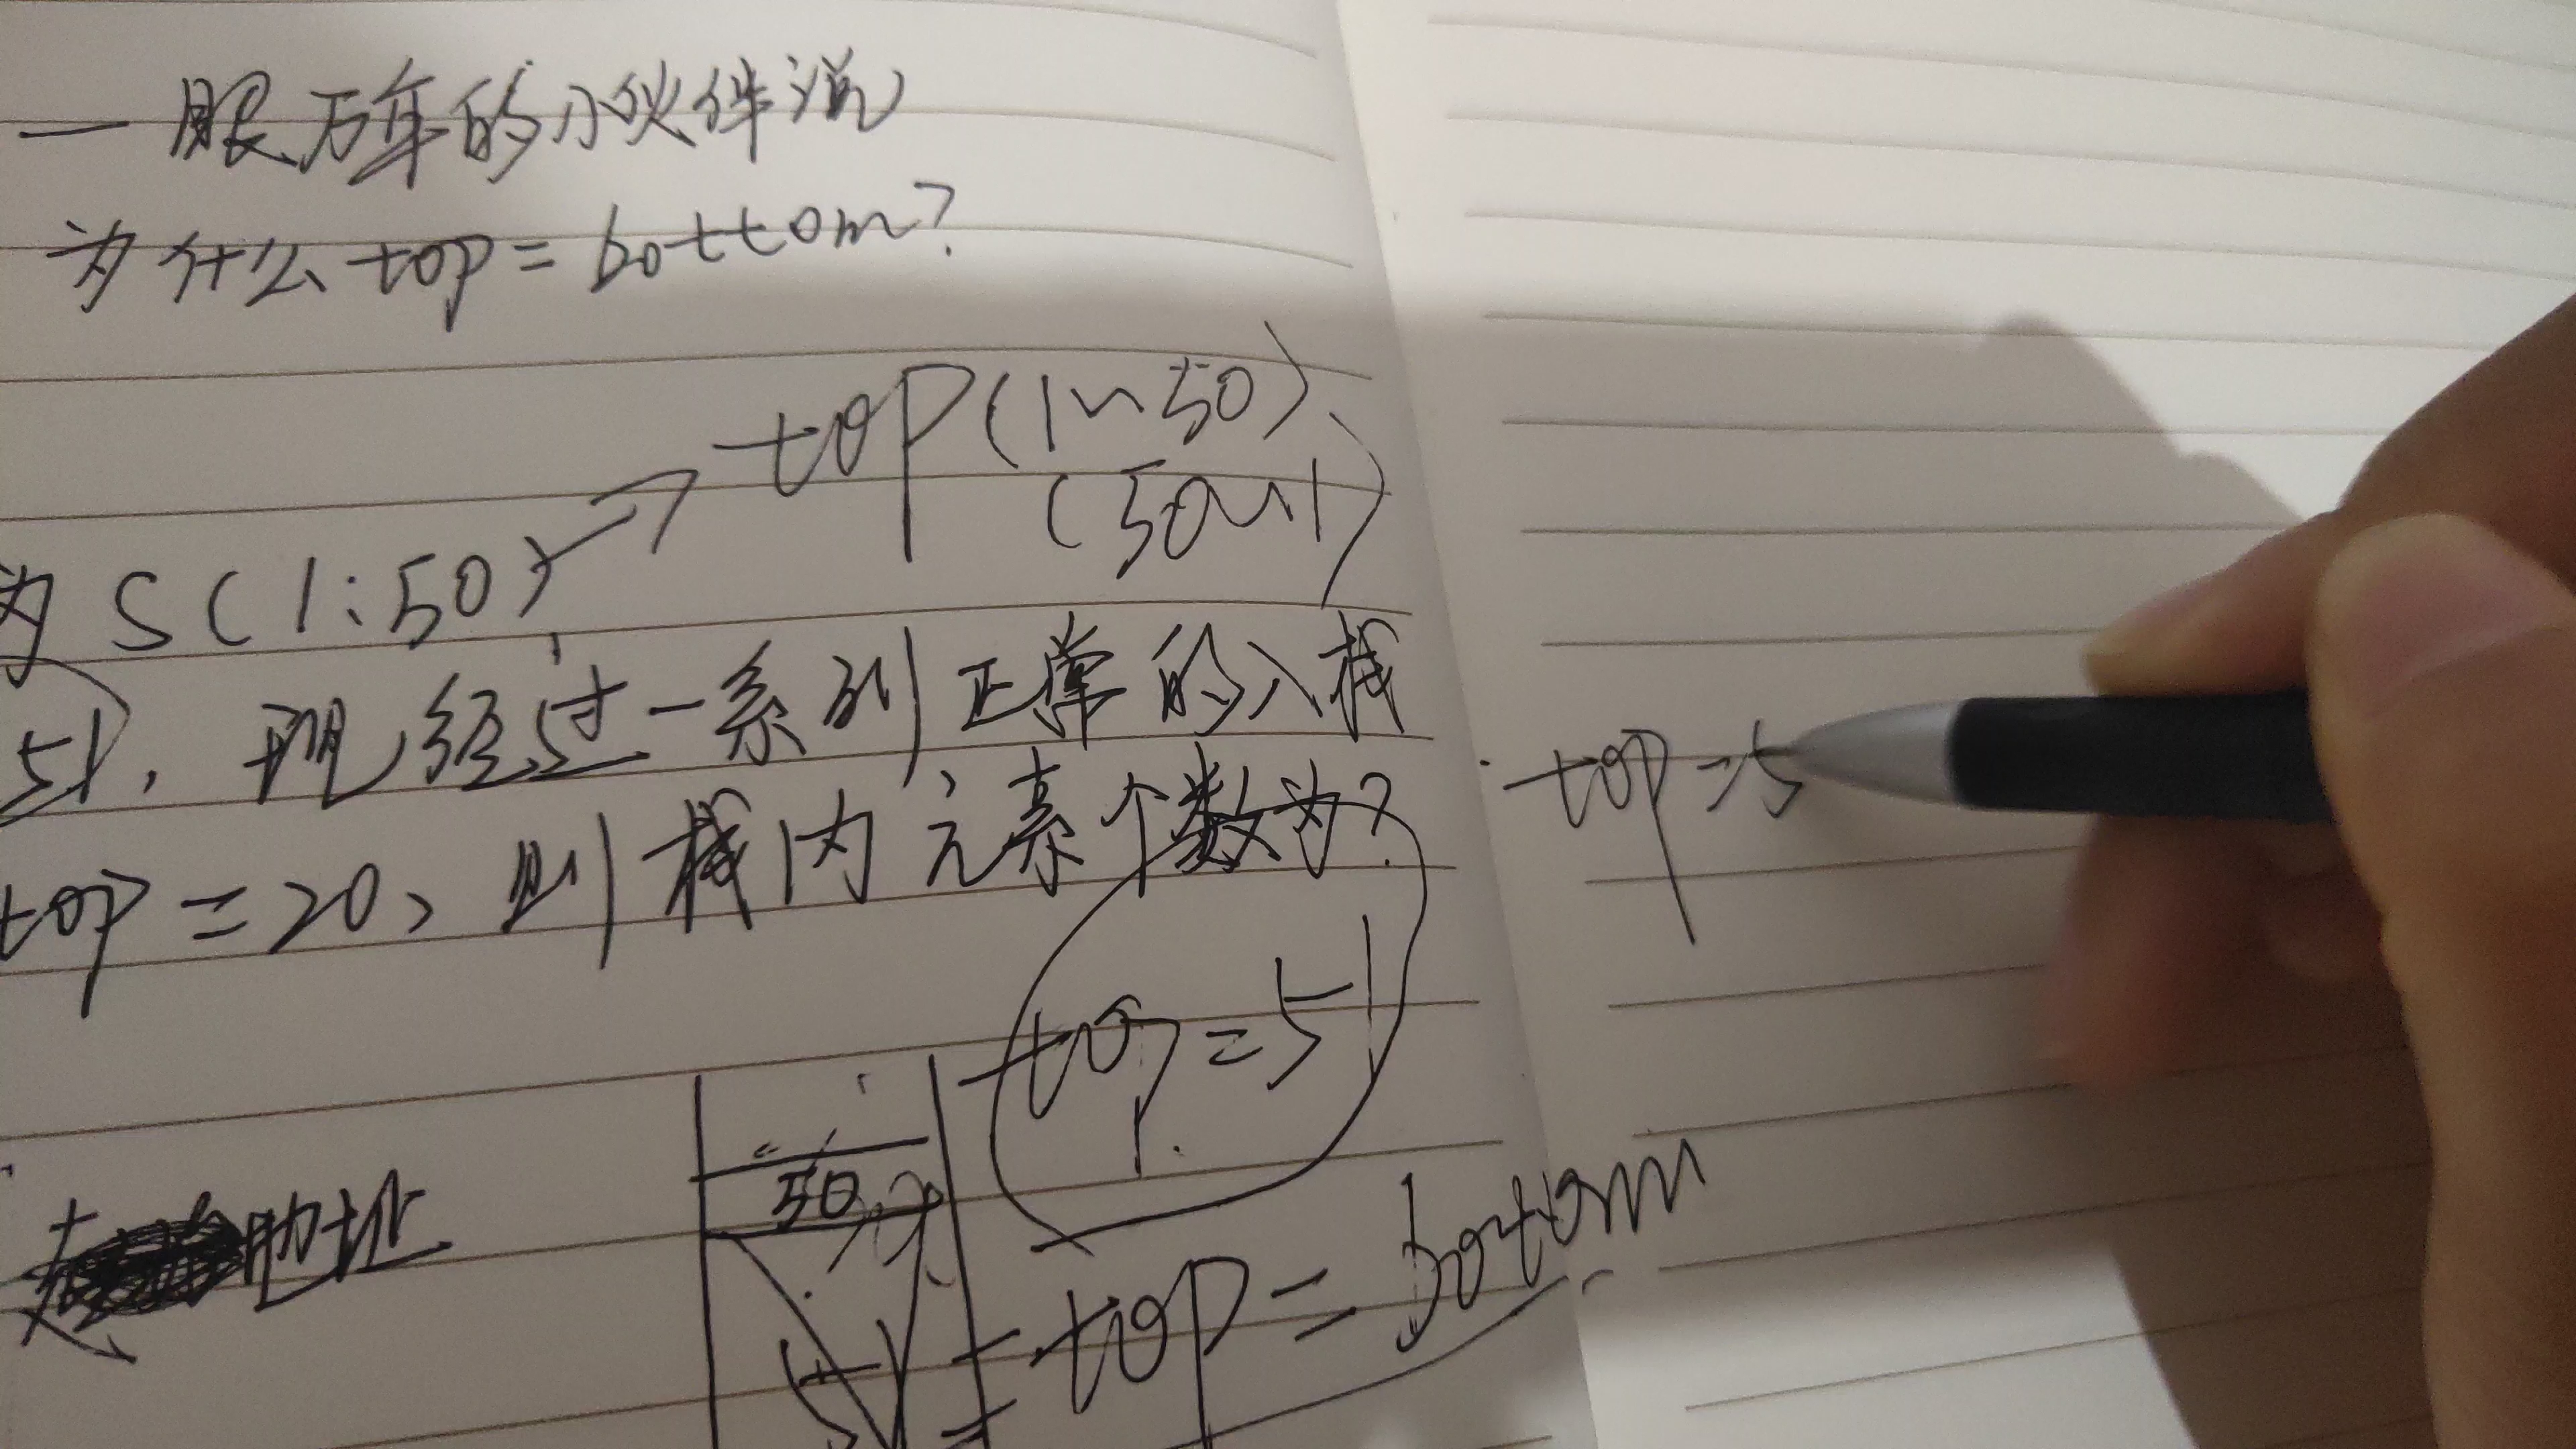 一眼万年的小伙伴说
为什么top=bottom?
top(1~50)、
(50~1)
为S(1:50)
51，现经过一系列正常的入栈
top=20，则栈内元素个数为？
top=5
top=51
50
地址
top=bottom
51